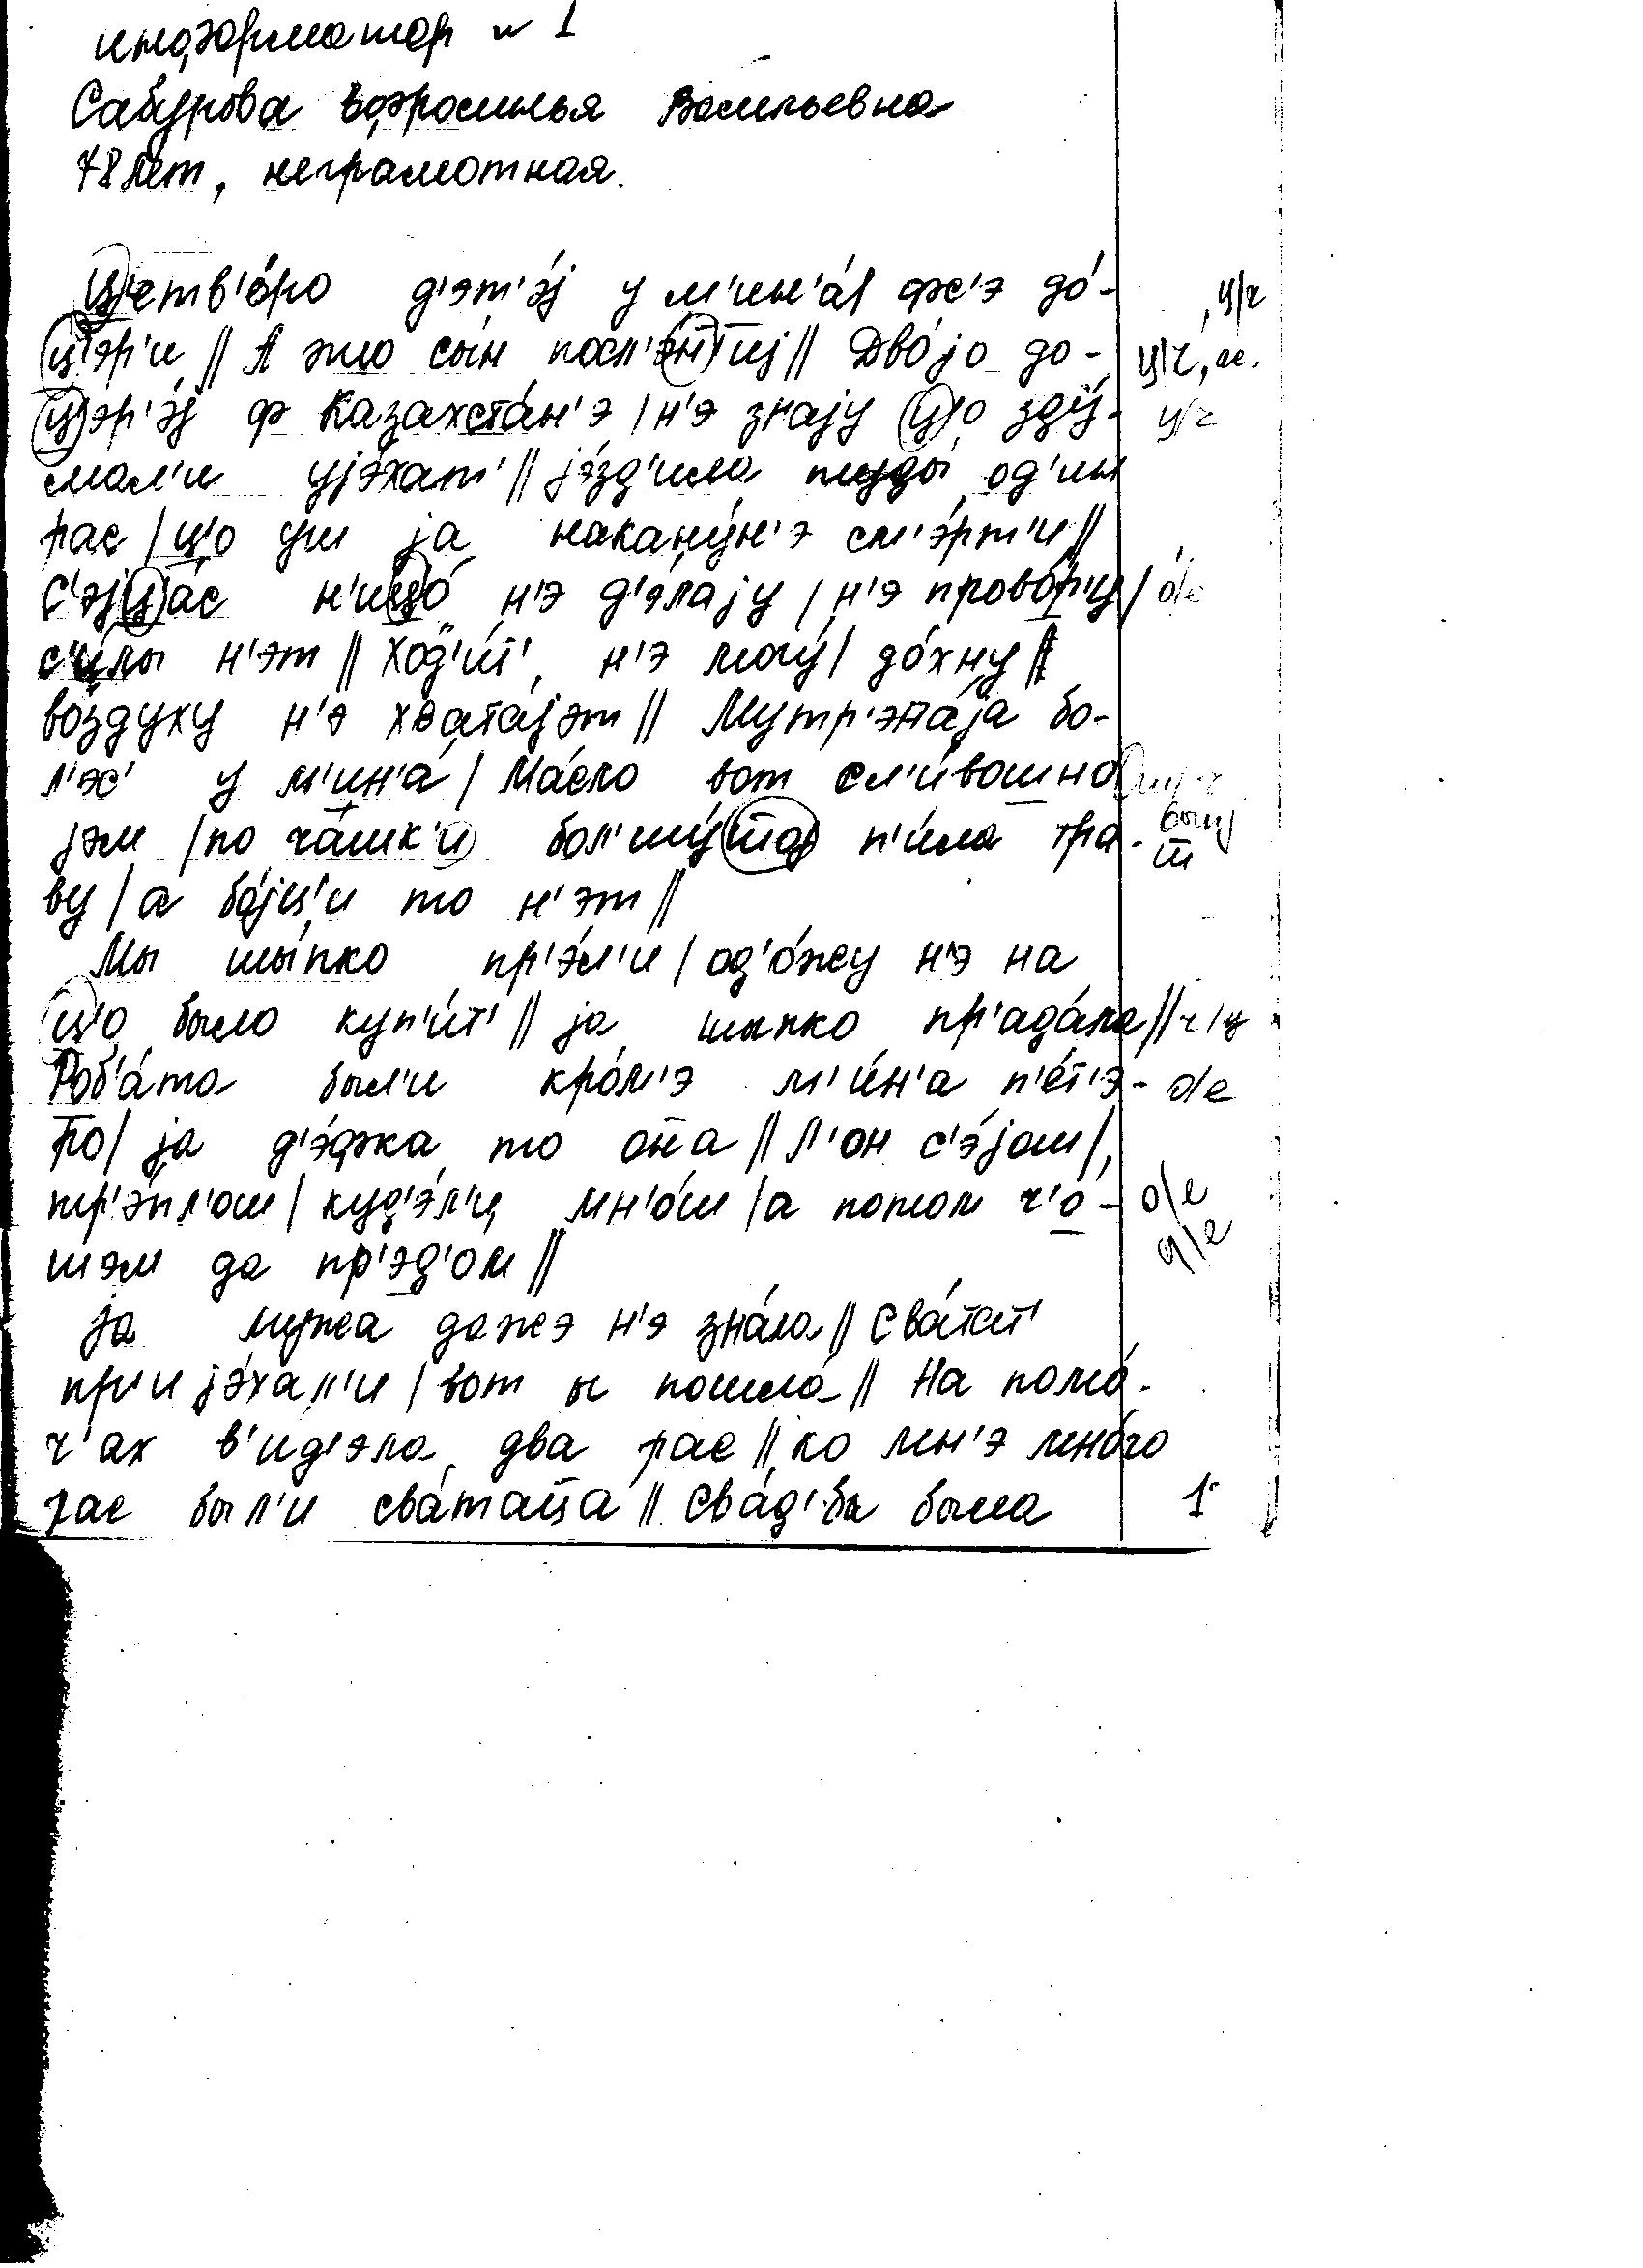 информатор № 1
Сабурова Васильевна
78 лет, неграмотная.
ц'етв'о́ро д'эт'э́j у м'ин'а́ | фс'э до́-
ц'эр'и || А это сы́н посл'э́н'н'иj || Дво́jо до-
ц'эр'э́j ф Казахста́н'э | н'э знаjу ц'о зду́-
мал'и уjэ́хат' || jэ́зд'ила туды́ од'ин
рас | ц'о уш jа накану́н'э см'э́рт'и ||
с'эjц'а́с н'ицо́ н'э д'э́лаjу | н'э прово́р'у |
с'и́лы н'эт || Ход'и́т' н'э могу́ | до́хну ||
во́здуху н'э хвата́jэт || Мутр'эна́jа бо-
л'эс' у м'ин'а́ | Ма́сло вот сл'и́вошно
jэм | по ча́шк'и бол'шу́шоj п'и́ла тра-
ву | а то н'эт ||
Мы шы́пко пр'э́л'и | од'о́жу н'э на
ц'о было куп'и́т' || jа шыпко пр'ада́ла ||
Роб'а́та был'и кро́м'э м'и́н'а п'е́т'э-
ро | jа д'э́фка то она || Л'он с'э́jом |
тр'э́пл'ом | куд'э́л'у мн'о́ш | а потом ч'о́-
шэм да пр'эд'о́м ||
jа мужа дажэ н'э зна́ла || Сва́тат'
пр'иjэ́хал'и | вот и пошла́ || На помо́-
ч'ах в'ид'эла два рас || ко мн'э мно́го
рас был'и сва́таца || Сва́д'ба была
ц/ч
ц/ч, ас.
ц/ч
о/е
ш
ч/ц
о/е
о/е
а/е
1